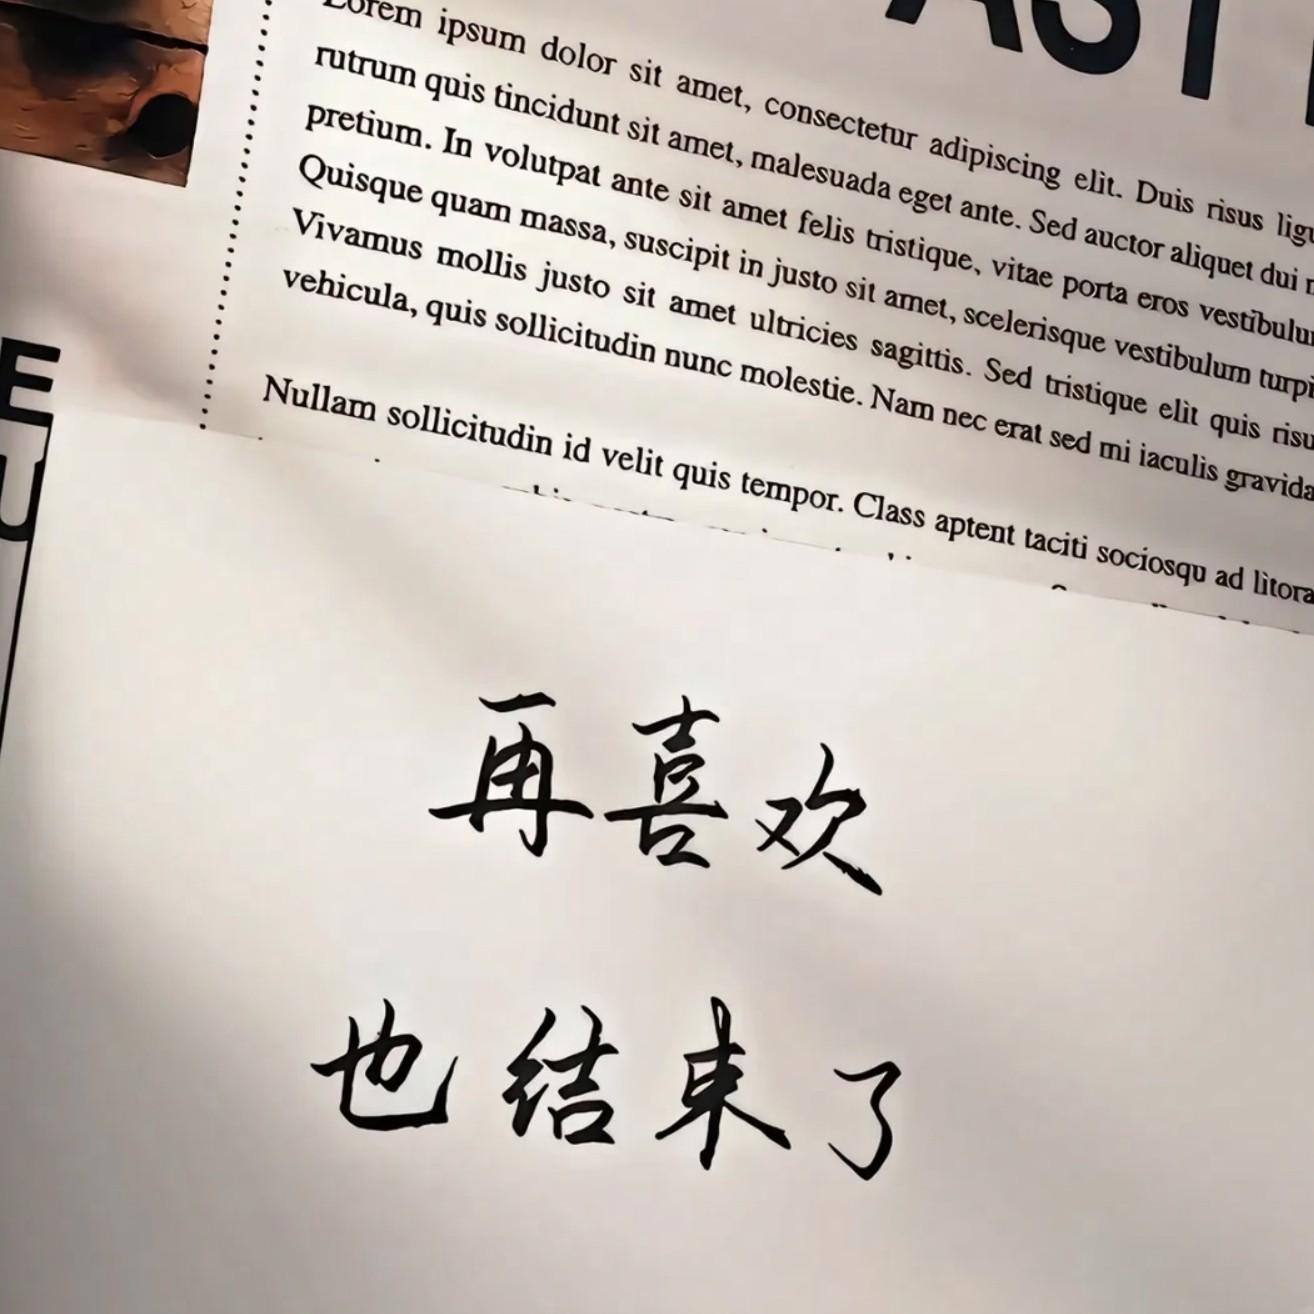 AST
Lorem ipsum dolor sit amet, consectetur adipiscing elit. Duis risus
rutrum quis tincidunt sit amet, malesuada eget ante. Sed auctor aliquet dui
pretium. In volutpat ante sit amet felis tristique, vitae porta eros
Quisque quam massa, suscipit in justo sit amet, scelerisque vestibulum
Vivamus mollis justo sit amet ultricies sagittis. Sed tristique elit quis
vehicula, quis sollicitudin nunc molestie. Nam nec erat sed mi iaculis
Nullam sollicitudin id velit quis tempor. Class aptent taciti sociosqu ad
E
U
再喜欢
也结束了